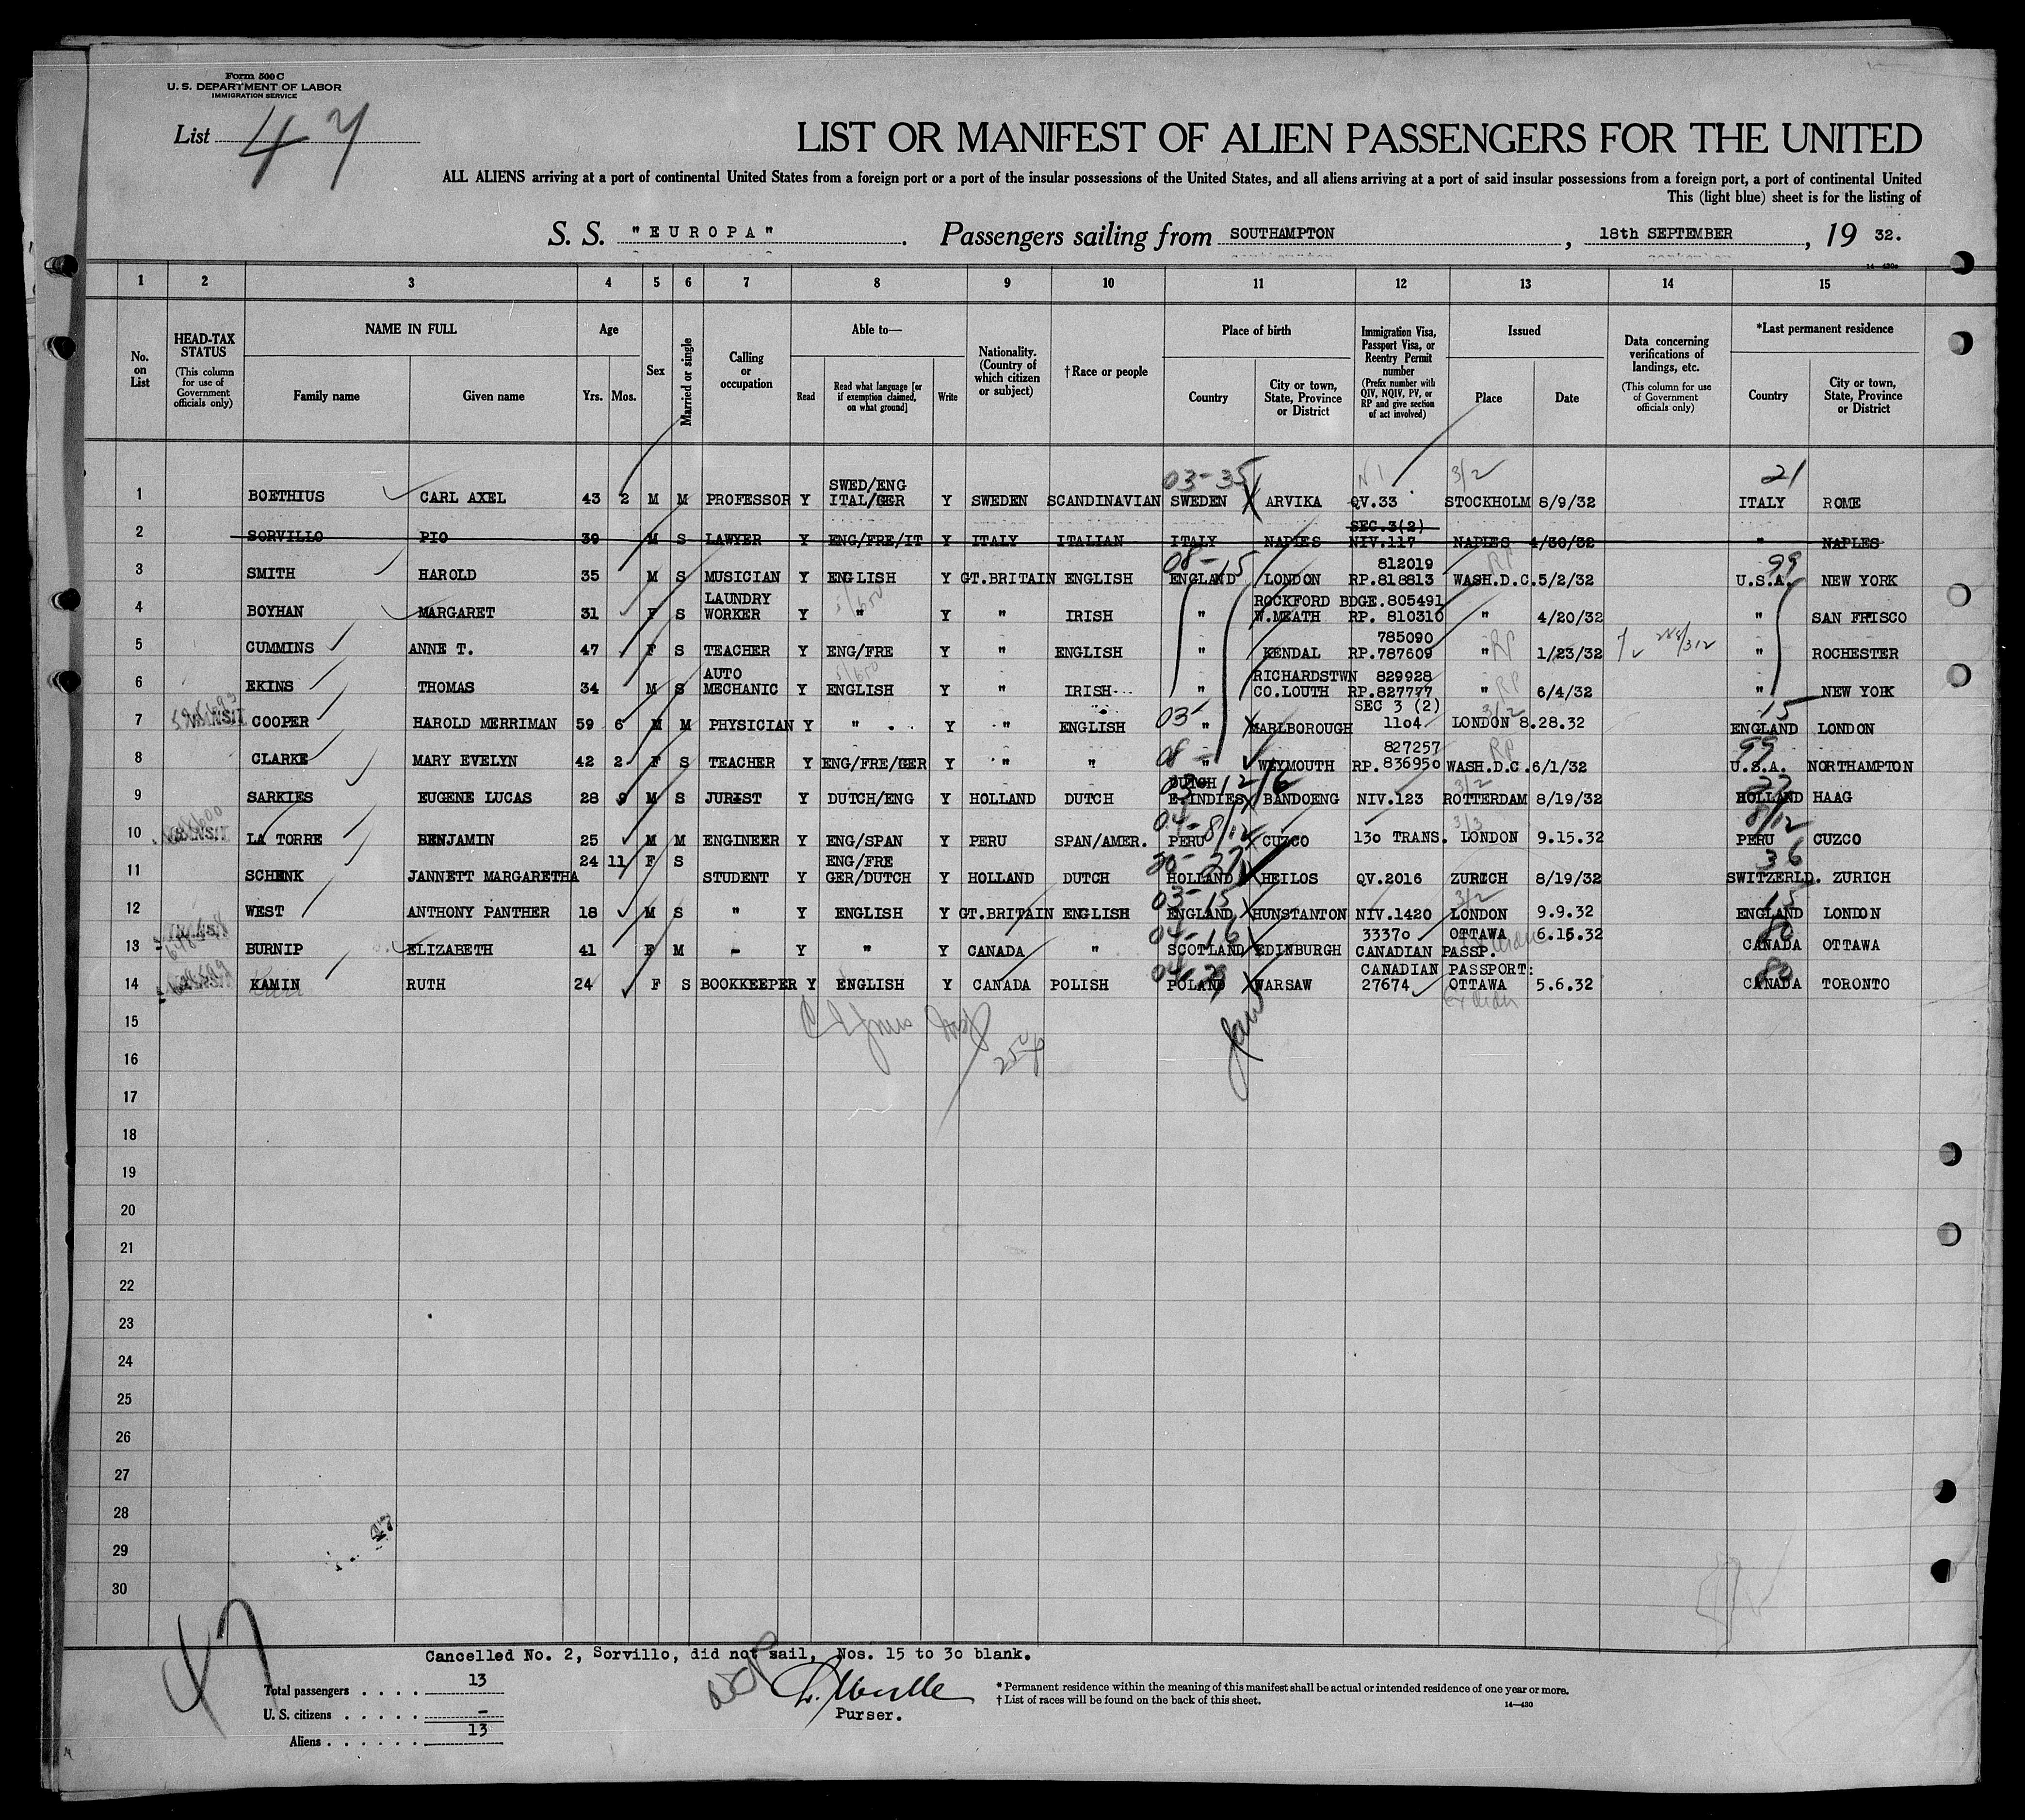 Form 500 C
U. S. DEPARTMENT OF LABOR
IMMIGRATION SERVICE
List 47
LIST OR MANIFEST OF ALIEN PASSENGERS FOR THE UNITED
ALL ALIENS arriving at a port of continental United States from a foreign port or a port of the insular possessions of the United States, and all aliens arriving at a port of said insular possessions from a foreign port, a port of continental United
This (light blue) sheet is for the listing of
S. S. "EUROPA" . Passengers sailing from SOUTHAMPTON , 18th SEPTEMBER , 19 32.
14—430a
1 2 3 4 5 6 7 8 9 10 11 12 13 14 15
No. on List
HEAD-TAX STATUS (This column for use of Government officials only)
NAME IN FULL Family name Given name
Age Yrs. Mos.
Sex
Married or single
Calling or occupation
Able to— Read Read what language [or if exemption claimed, on what ground] Write
Nationality. (Country of which citizen or subject)
†Race or people
Place of birth Country City or town, State, Province or District
Immigration Visa, Passport Visa, or Reentry Permit number (Prefix number with QIV, NQIV, PV, or RP and give section of act involved)
Issued Place Date
Data concerning verifications of landings, etc. (This column for use of Government officials only)
*Last permanent residence Country City or town, State, Province or District
03-35 N 1 3/2 21
SWED/ENG
1 BOETHIUS CARL AXEL 43 2 M M PROFESSOR Y ITAL/GER Y SWEDEN SCANDINAVIAN SWEDEN ARVIKA QV.33 STOCKHOLM 8/9/32 ITALY ROME
SEC.3(2)
2 SORVILLO PIO 39 M S LAWYER Y ENG/FRE/IT Y ITALY ITALIAN ITALY NAPLES NIV.117 NAPLES 4/30/32 " NAPLES
08-15 812019 RP 99
3 SMITH HAROLD 35 M S MUSICIAN Y ENGLISH Y GT.BRITAIN ENGLISH ENGLAND LONDON RP.818813 WASH.D.C. 5/2/32 U.S.A. NEW YORK
LAUNDRY 5/650 ROCKFORD BDGE. 805491
4 BOYHAN MARGARET 31 F S WORKER Y " Y " IRISH " W.MEATH RP. 810310 " 4/20/32 " SAN FRISCO
785090 RP
5 CUMMINS ANNE T. 47 F S TEACHER Y ENG/FRE Y " ENGLISH " KENDAL RP.787609 " 1/23/32 " ROCHESTER
AUTO 5/650 RICHARDSTWN 829928 RP
6 EKINS THOMAS 34 M S MECHANIC Y ENGLISH Y " IRISH " CO.LOUTH RP.827777 " 6/4/32 " NEW YORK
SEC 3 (2) 3/2 15
7 COOPER HAROLD MERRIMAN 59 6 M M PHYSICIAN Y " Y " ENGLISH 03- " MARLBOROUGH 1104 LONDON 8.28.32 ENGLAND LONDON
827257 RP 99
8 CLARKE MARY EVELYN 42 2 F S TEACHER Y ENG/FRE/GER Y " " 08- " WEYMOUTH RP.836950 WASH.D.C. 6/1/32 U.S.A. NORTHAMPTON
DUTCH 3/2
9 SARKIES EUGENE LUCAS 28 9 M S JURIST Y DUTCH/ENG Y HOLLAND DUTCH E-INDIES BANDOENG NIV.123 ROTTERDAM 8/19/32 HOLLAND HAAG
04-8/12 3/3 8/12
10 LA TORRE BENJAMIN 25 M M ENGINEER Y ENG/SPAN Y PERU SPAN/AMER. PERU CUZCO 130 TRANS. LONDON 9.15.32 PERU CUZCO
24 11 F S ENG/FRE 36
11 SCHENK JANNETT MARGARETHA STUDENT Y GER/DUTCH Y HOLLAND DUTCH HOLLAND HEILOS QV.2016 ZURICH 8/19/32 SWITZERLD. ZURICH
03-15 3/2 15
12 WEST ANTHONY PANTHER 18 M S " Y ENGLISH Y GT.BRITAIN ENGLISH ENGLAND HUNSTANTON NIV.1420 LONDON 9.9.32 ENGLAND LONDON
04-16 33370 OTTAWA 6.15.32 80
13 BURNIP ELIZABETH 41 F M - Y " Y CANADA " SCOTLAND EDINBURGH CANADIAN PASSP. CANADA OTTAWA
CANADIAN PASSPORT: 80
14 KAMIN RUTH 24 F S BOOKKEEPER Y ENGLISH Y CANADA POLISH POLAND WARSAW 27674 OTTAWA 5.6.32 CANADA TORONTO
15
16
17
18
19
20
21
22
23
24
25
26
27
28
29
30
47
47
Cancelled No. 2, Sorvillo, did not sail, Nos. 15 to 30 blank.
Total passengers . . . . 13
U. S. citizens . . . . . -
Aliens . . . . . . 13
Purser.
* Permanent residence within the meaning of this manifest shall be actual or intended residence of one year or more.
† List of races will be found on the back of this sheet.
14—430